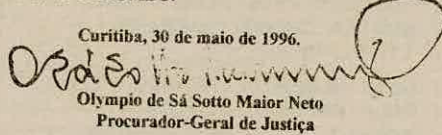 Curitiba, 30 de maio de 1996.
Olympio de Sá Sotto Maior Neto
Procurador-Geral de Justiça